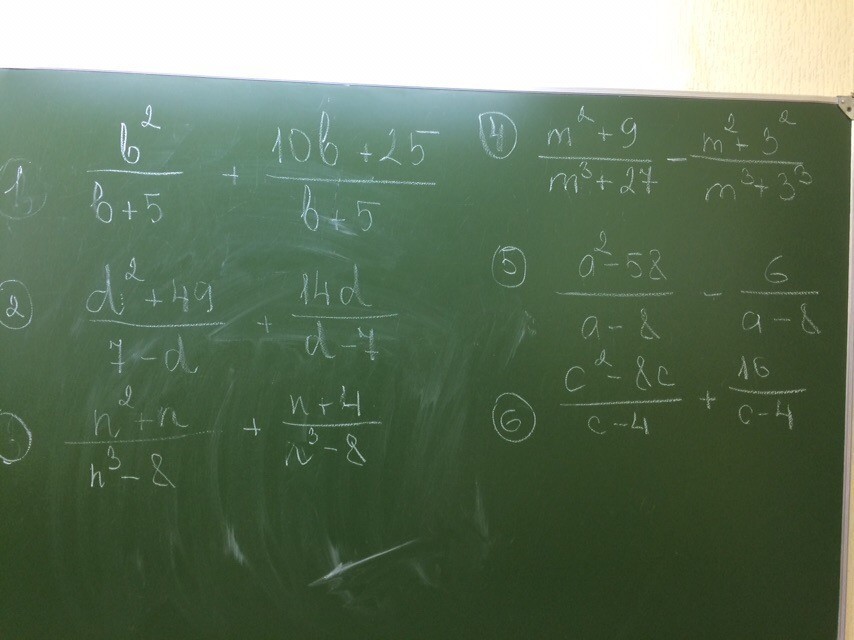 ① b²/(b+5) + (10b+25)/(b+5)
② (d²+49)/(7-d) + 14d/(d-7)
③ (n²+n)/(n³-8) + (n+4)/(n³-8)
④ (m²+9)/(m³+27) - (m²+3²)/(m³+3³)
⑤ (a²-58)/(a-8) - 6/(a-8)
⑥ (c²-8c)/(c-4) + 16/(c-4)